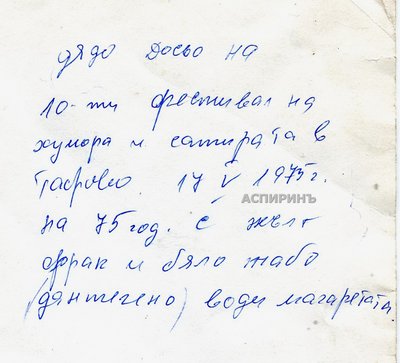 дядо Досьо на
10-ти фестивал на
хумора и сатирата в
17 V 1975г.
АСПИРИНЪ
на 75 год. с жълт
фрак и бяло жабо
(дантелено) води магаретата